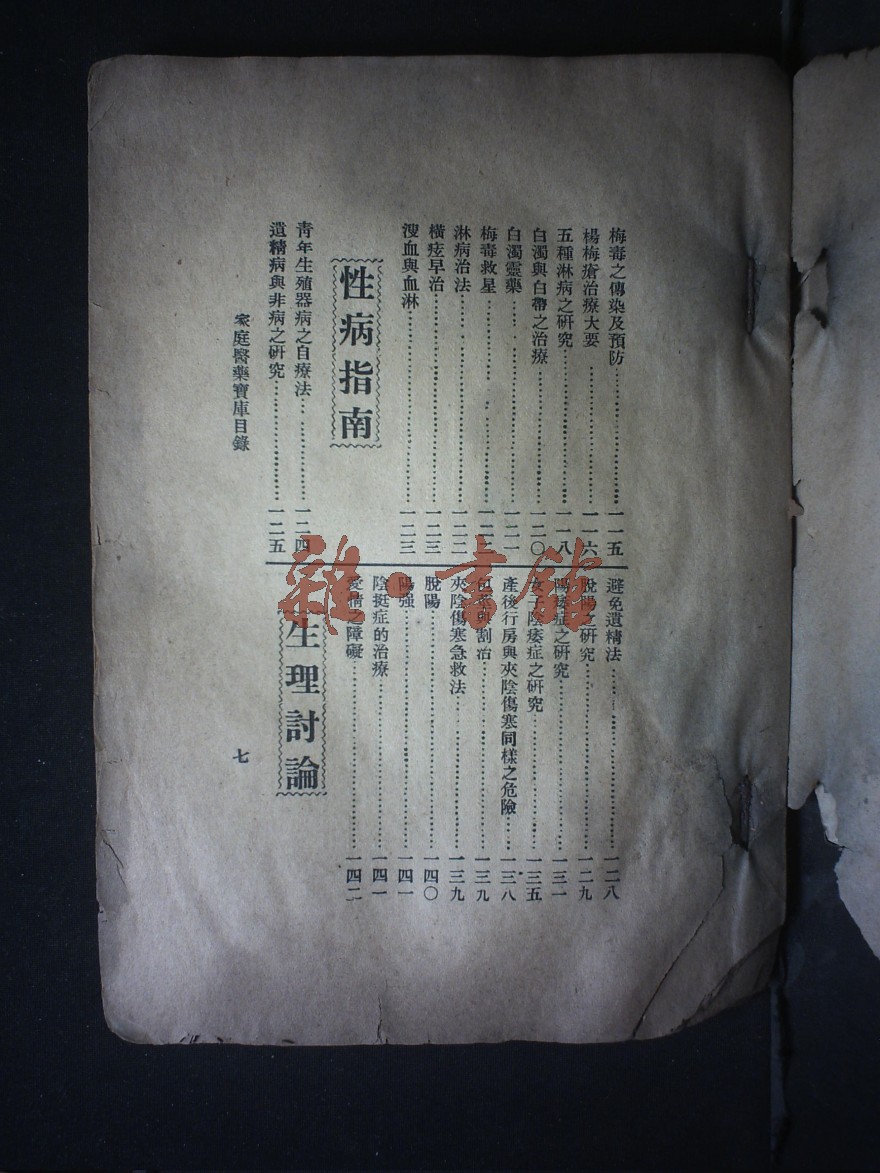 梅毒之傳染及預防……一一五
楊梅瘡治療大要……一一六
五種淋病之硏究……一一八
白濁與白帶之治療……一二〇
白濁靈藥……一二一
梅毒救星……一二二
淋病治法……一二二
橫痃早治……一二三
溲血與血淋……一二三
性病指南
靑年生殖器病之自療法……一二四
遺精病與非病之硏究……一二五
避免遺精法……一二八
脫陽之硏究……一二九
陽痿症之硏究……一三一
女子陰痿症之硏究……一三五
產後行房與夾陰傷寒同樣之危險……一三八
包莖與割治……一三九
夾陰傷寒急救法……一三九
脫陽……一四〇
陽强……一四一
陰挺症的治療……一四一
愛情之障礙……一四二
生理討論
家庭醫藥寶庫目錄
七
雜·書館